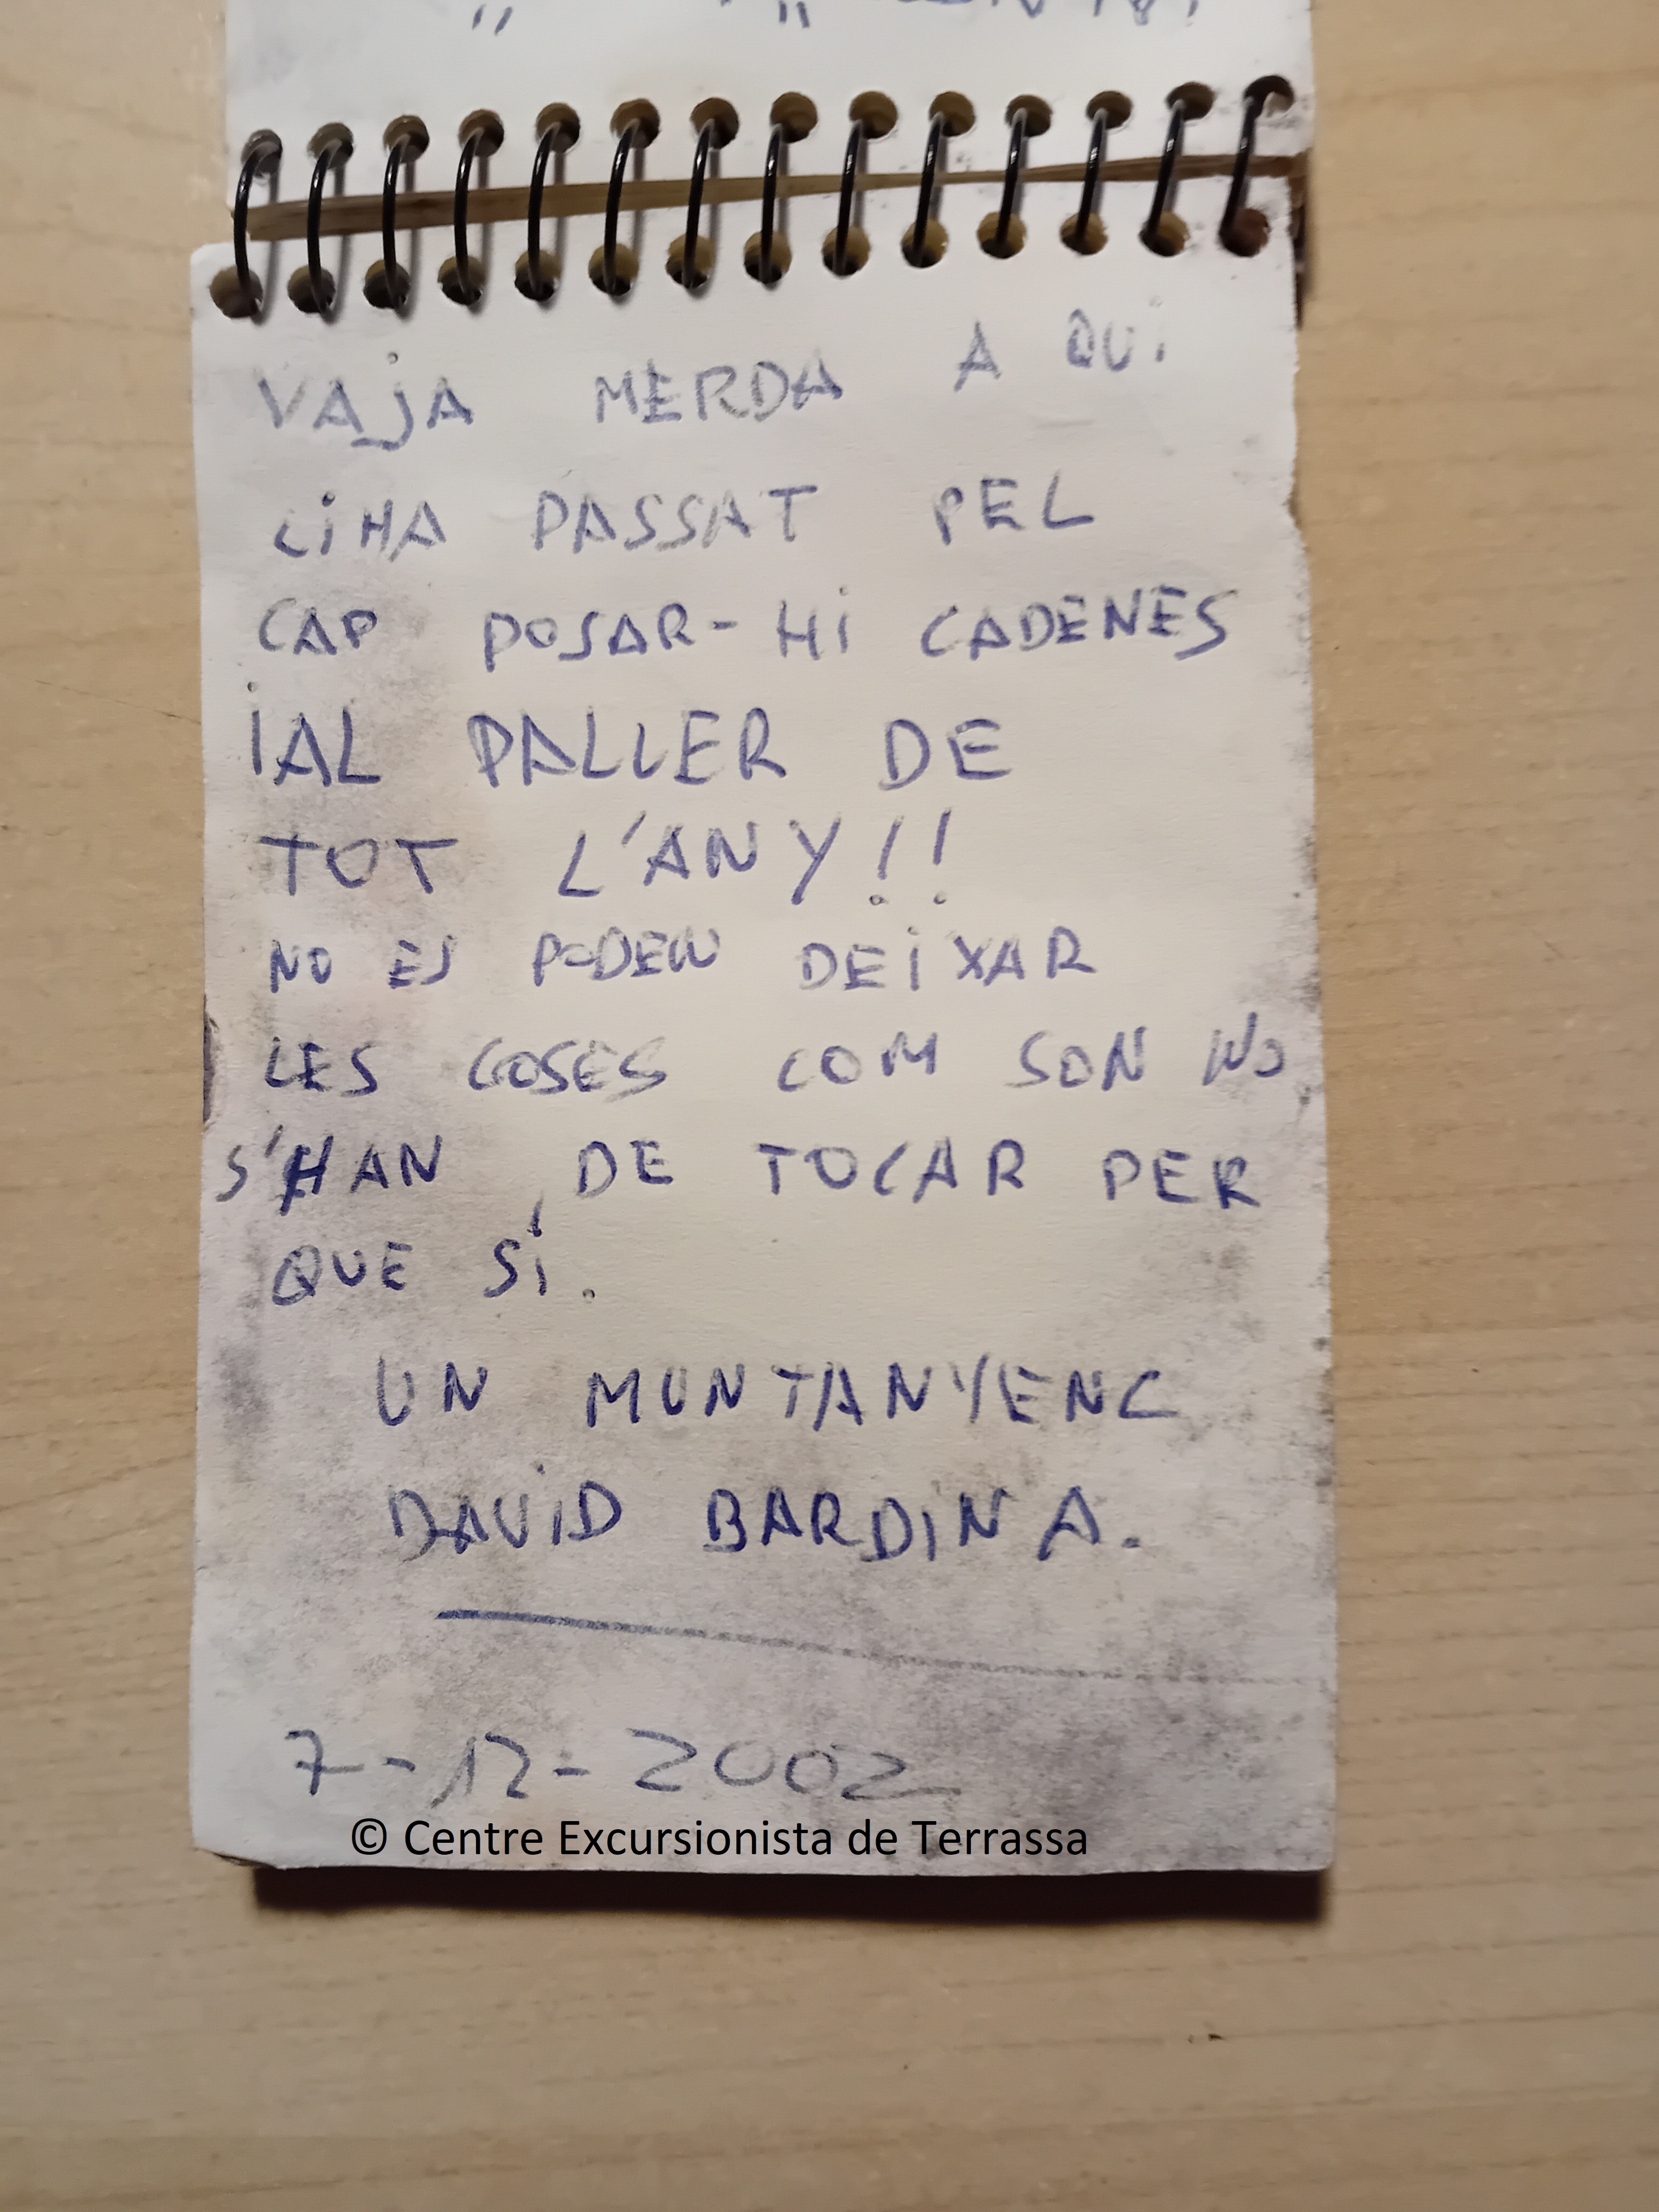 VAJA MERDA A QUI
LiHA PASSAT PEL
CAP POSAR-Hi CADENES
iAL PALLER DE
TOT L'ANY!!
NO ES PODEN DEiXAR
LES COSES COM SON NO
S'HAN DE TOCAR PER
QUE SÍ.
UN MUNTANYENC
DAViD BARDiNA.
7-12-2002
© Centre Excursionista de Terrassa